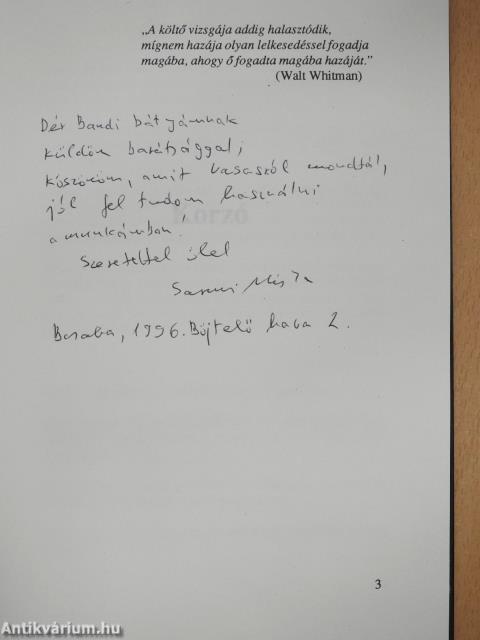 „A költő vizsgája addig halasztódik,
mígnem hazája olyan lelkesedéssel fogadja
magába, ahogy ő fogadta magába hazáját.”
(Walt Whitman)
Dér Bandi bátyámnak
küldöm barátsággal;
köszönöm, amit Vasasról mondtál,
jól fel tudom használni
a munkámban.
Szeretettel ölel
Miska
1996. Böjtelő hava 2.
Korzó
3
Antikvárium.hu